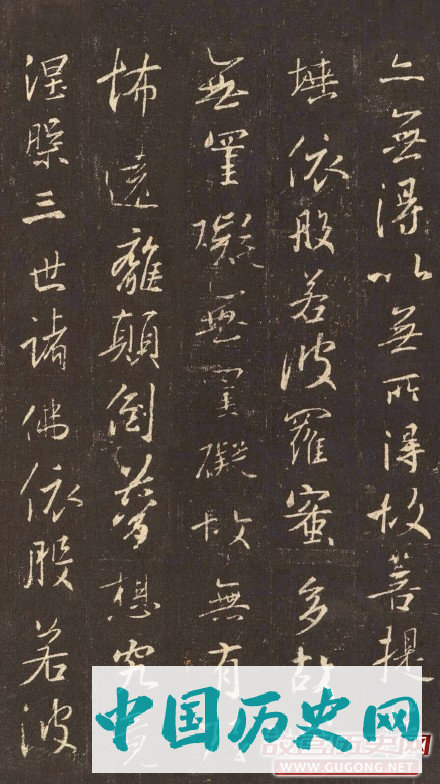 亦無得以無所得故菩提
埵依般若波羅蜜多故
無罣礙無罣礙故無有
怖遠離顛倒夢想究竟
涅槃三世諸佛依般若波
中国历史网
故宫历史网
WWW.GUGONG.NET